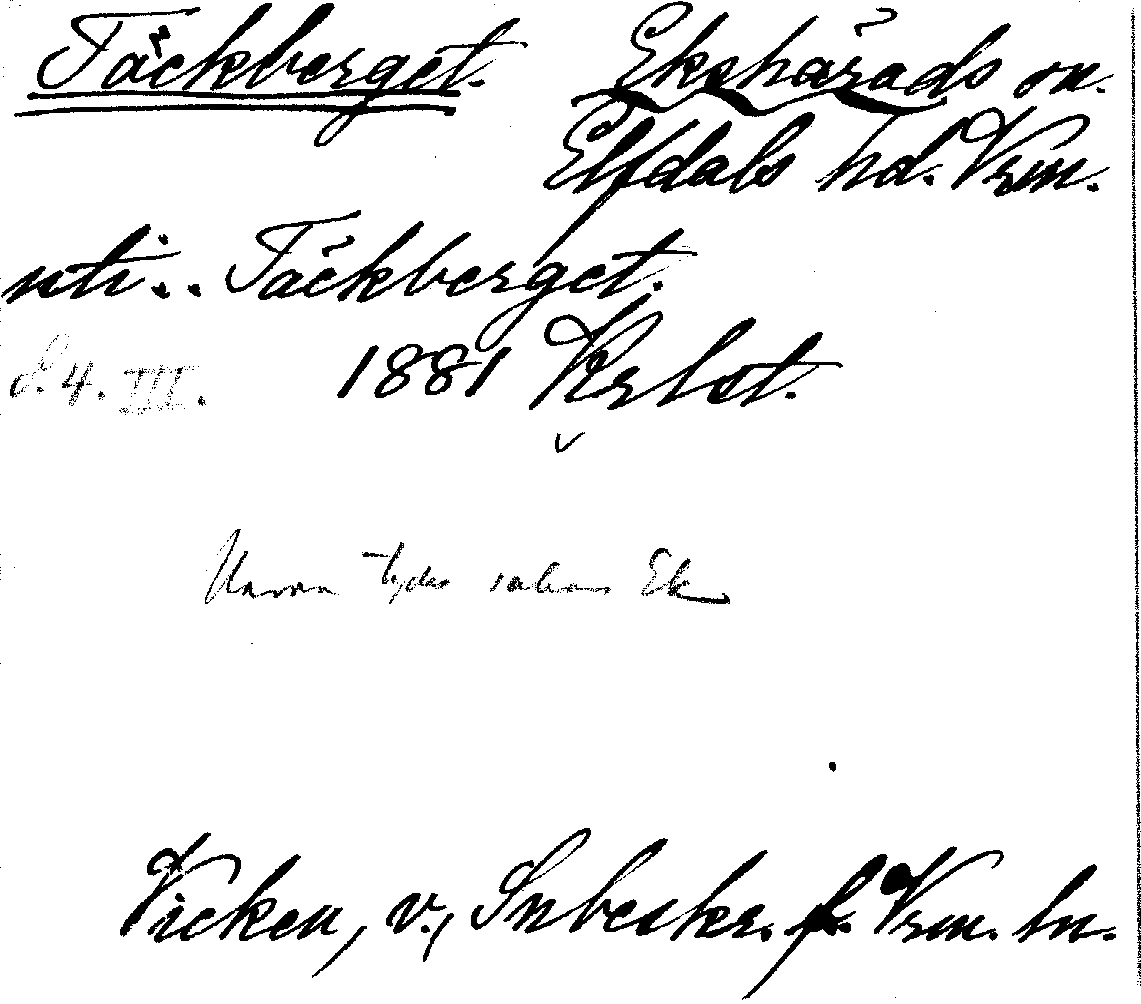 Täckberget. Ekshärads sn.
Elfdals hd. Vrm.
uti.. Täckberget.
d. 4. III. 1881 Krbst.
Namn tyds saknas Ek
Vicken, v., Snbeskr. f. Vrm. ln.